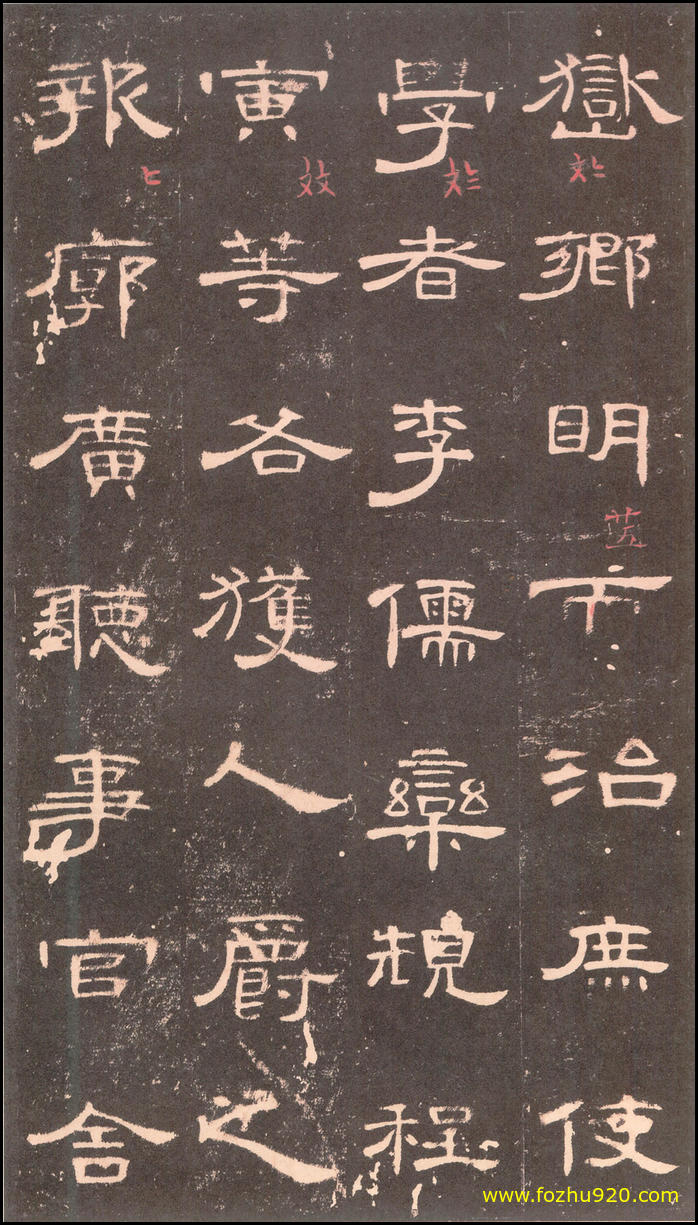 嶽鄉明而治庶使
學者李儒欒規程
寅等各獲人爵之
報廓廣聽事官舍
www.fozhu920.com